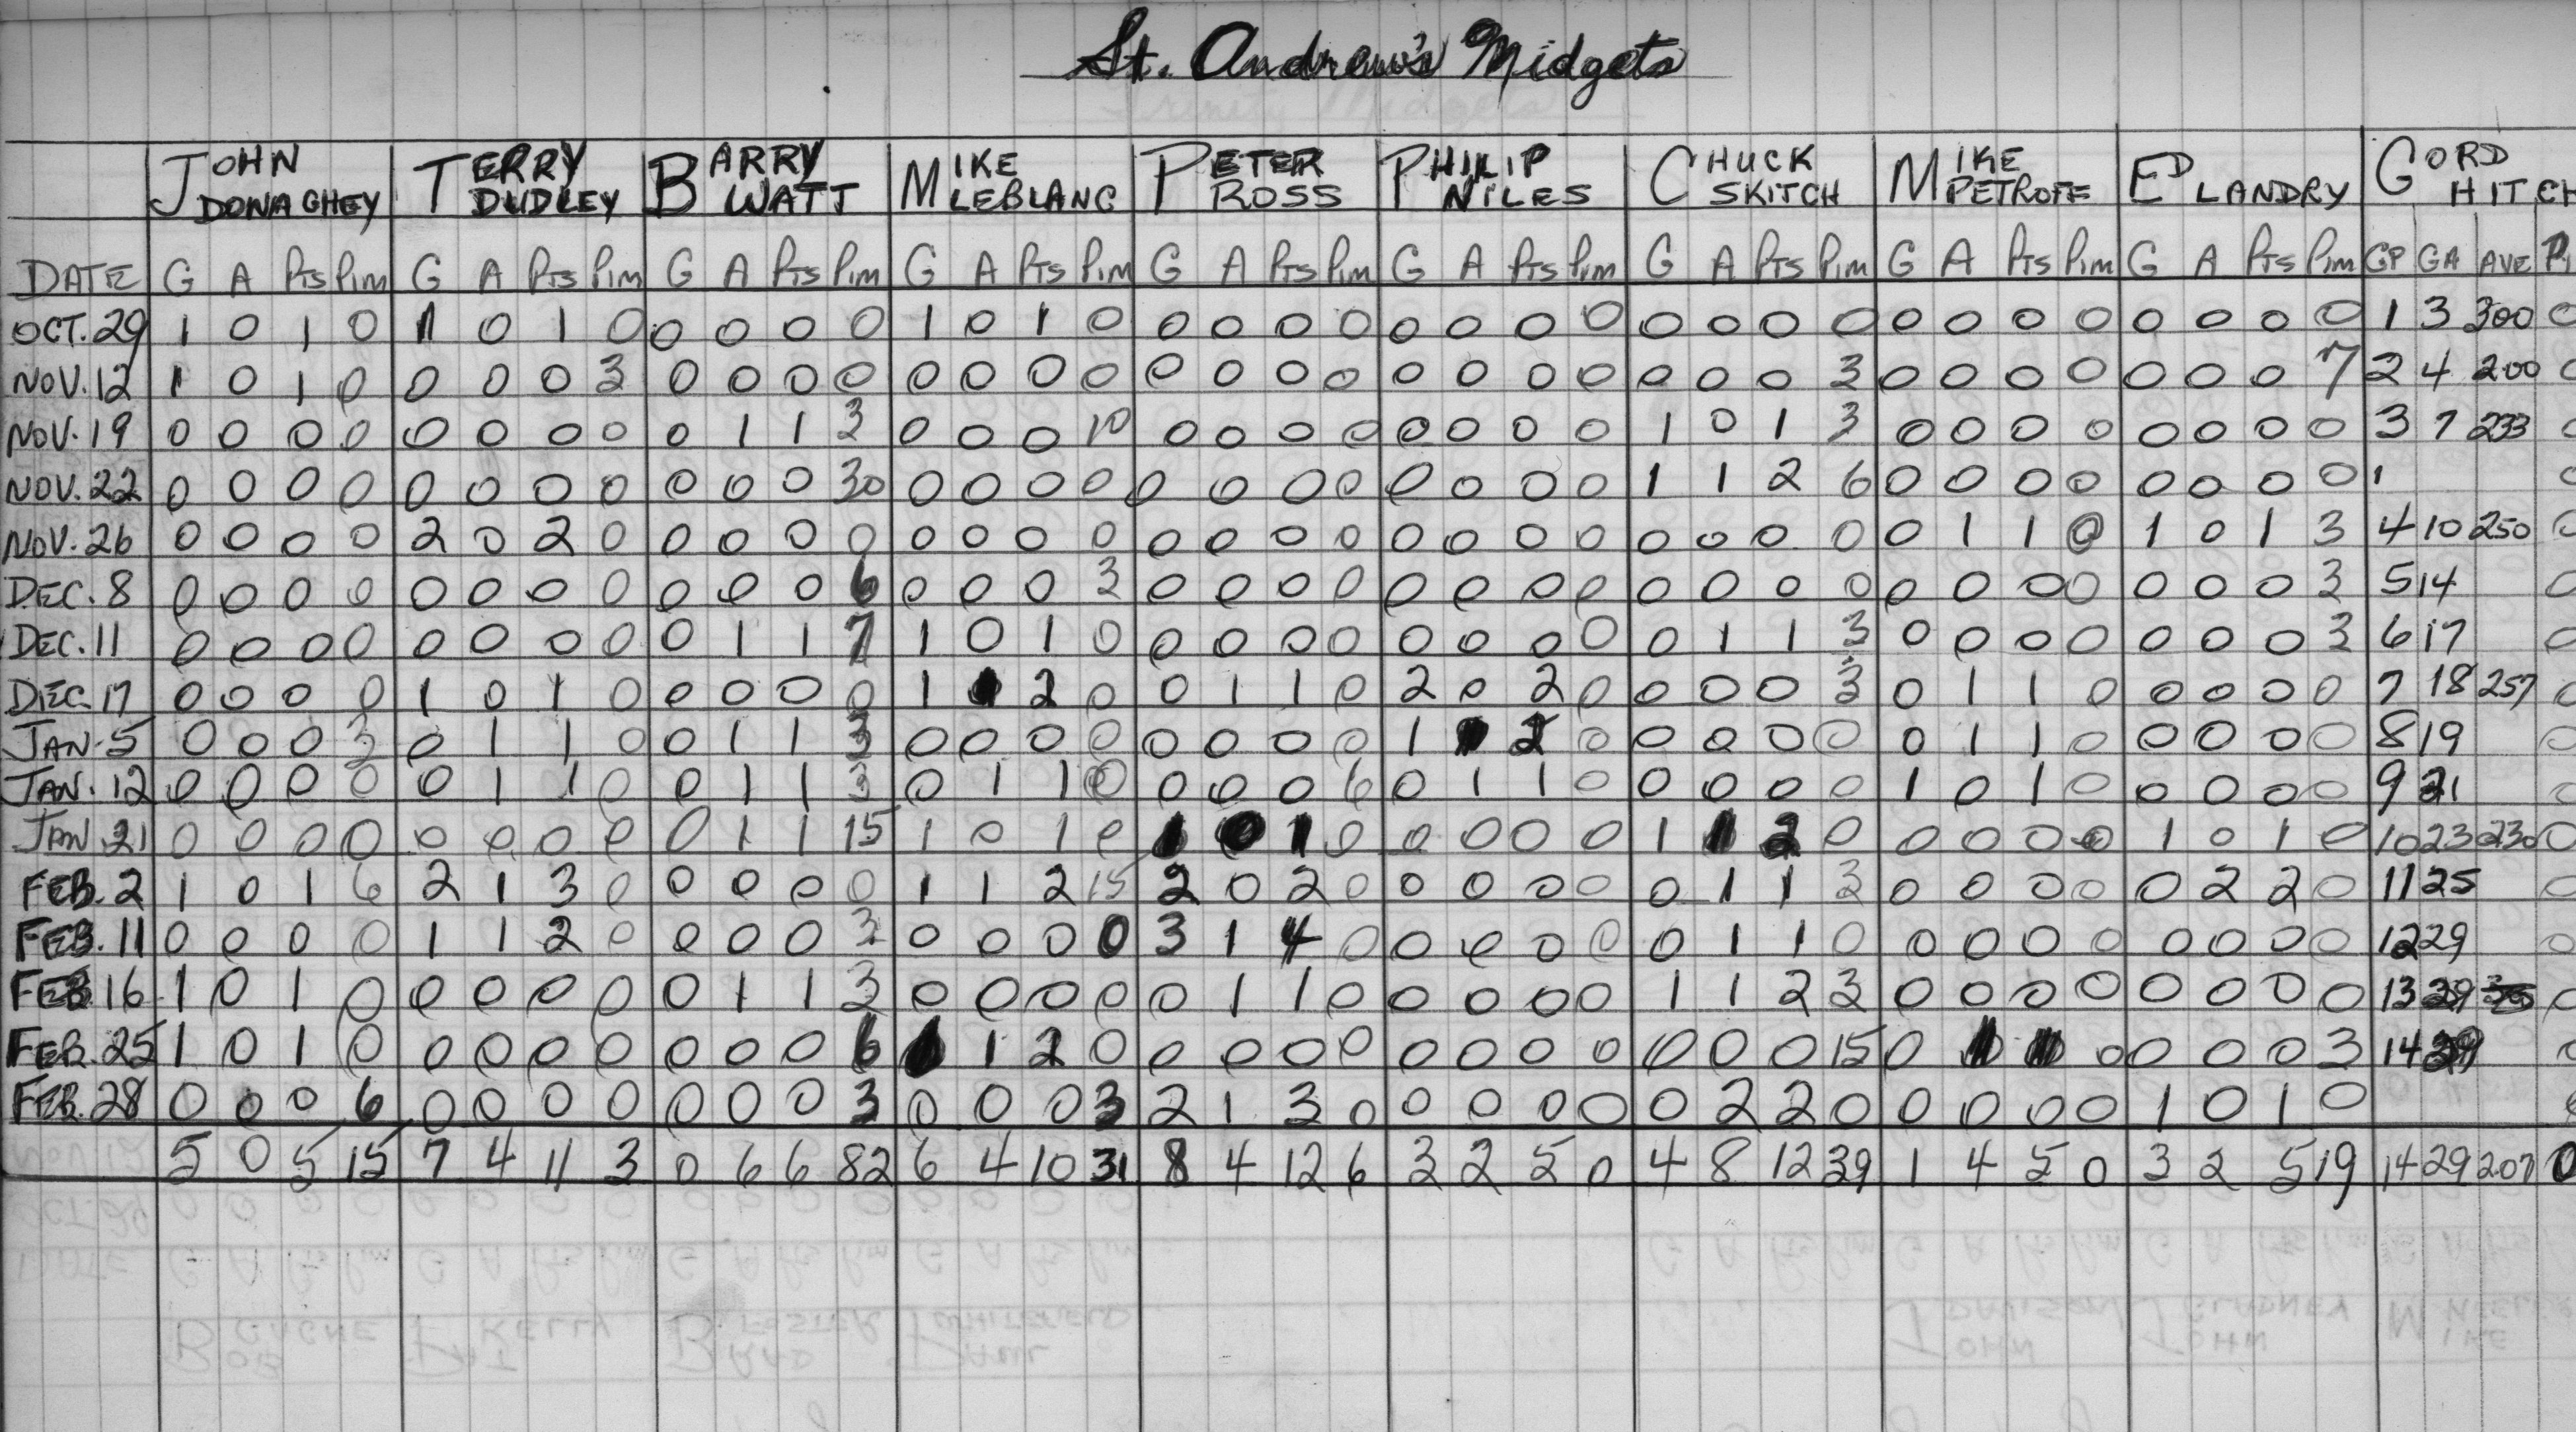 St. Andrew's Midgets
JOHN DONAGHEY TERRY DUDLEY BARRY WATT MIKE LEBLANC PETER ROSS PHILIP NILES CHUCK SKITCH MIKE PETROFF ED LANDRY GORD HITCH
DATE G A Pts Pim G A Pts Pim G A Pts Pim G A Pts Pim G A Pts Pim G A Pts Pim G A Pts Pim G A Pts Pim G A Pts Pim GP GA AVE
OCT. 29 1 0 1 0 1 0 1 0 0 0 0 0 1 0 1 0 0 0 0 0 0 0 0 0 0 0 0 0 0 0 0 0 0 0 0 0 1 3 300 0
NOV. 12 1 0 1 0 0 0 0 3 0 0 0 0 0 0 0 0 0 0 0 0 0 0 0 0 0 0 0 3 0 0 0 0 0 0 0 7 2 4 200 0
NOV. 19 0 0 0 0 0 0 0 0 0 1 1 3 0 0 0 10 0 0 0 0 0 0 0 0 1 0 1 3 0 0 0 0 0 0 0 0 3 7 233 0
NOV. 22 0 0 0 0 0 0 0 0 0 0 0 30 0 0 0 0 0 0 0 0 0 0 0 0 1 1 2 6 0 0 0 0 0 0 0 0 1 0
NOV. 26 0 0 0 0 2 0 2 0 0 0 0 0 0 0 0 0 0 0 0 0 0 0 0 0 0 0 0 0 0 1 1 0 1 0 1 3 4 10 250 0
DEC. 8 0 0 0 0 0 0 0 0 0 0 0 6 0 0 0 3 0 0 0 0 0 0 0 0 0 0 0 0 0 0 0 0 0 0 0 3 5 14 0
DEC. 11 0 0 0 0 0 0 0 0 0 1 1 7 1 0 1 0 0 0 0 0 0 0 0 0 0 1 1 3 0 0 0 0 0 0 0 3 6 17 0
DEC. 17 0 0 0 0 1 0 1 0 0 0 0 0 1 1 2 0 0 1 1 0 2 0 2 0 0 0 0 3 0 1 1 0 0 0 0 0 7 18 257 0
JAN. 5 0 0 0 3 0 1 1 0 0 1 1 3 0 0 0 0 0 0 0 0 1 1 2 0 0 0 0 0 0 1 1 0 0 0 0 0 8 19 0
JAN. 12 0 0 0 0 0 1 1 0 0 1 1 3 0 1 1 0 0 0 0 6 0 1 1 0 0 0 0 0 1 0 1 0 0 0 0 0 9 21 0
JAN. 21 0 0 0 0 0 0 0 0 0 1 1 15 1 0 1 0 1 0 1 0 0 0 0 0 1 1 2 0 0 0 0 0 1 0 1 0 10 23 230 0
FEB. 2 1 0 1 6 2 1 3 0 0 0 0 0 1 1 2 15 2 0 2 0 0 0 0 0 0 1 1 3 0 0 0 0 0 2 2 0 11 25 0
FEB. 11 0 0 0 0 1 1 2 0 0 0 0 3 0 0 0 0 3 1 4 0 0 0 0 0 0 1 1 0 0 0 0 0 0 0 0 0 12 29 0
FEB. 16 1 0 1 0 0 0 0 0 0 1 1 3 0 0 0 0 0 1 1 0 0 0 0 0 1 1 2 3 0 0 0 0 0 0 0 0 13 29 0
FEB. 25 1 0 1 0 0 0 0 0 0 0 0 6 1 2 0 0 0 0 0 0 0 0 0 0 0 0 15 0 0 0 0 0 3 14 29 0
FEB. 28 0 0 0 6 0 0 0 0 0 0 0 3 0 0 0 3 2 1 3 0 0 0 0 0 0 2 2 0 0 0 0 0 1 0 1 0
5 0 5 15 7 4 11 3 0 6 6 82 6 4 10 31 8 4 12 6 3 2 5 0 4 8 12 39 1 4 5 0 3 2 5 19 14 29 207 0